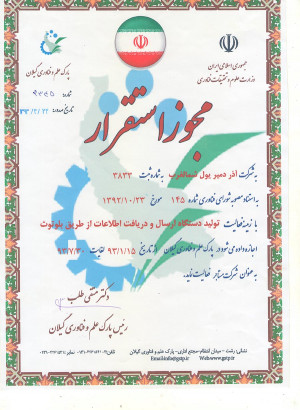 جمهوری اسلامی ایران
وزارت علوم و تحقیقات و فناوری
پارک علم و فناوری گیلان
شماره
تاریخ صدور:
مجوز استقرار
به شرکت آذر دمیر یول شمالغرب به شماره ثبت ۳۸۳۳
به استناد مصوبه شورای فناوری شماره ۱۴۵ مورخ ۱۳۹۲/۱۰/۲۳
با زمینه فعالیت تولید دستگاه ارسال و دریافت اطلاعات از طریق بلوتوث
اجازه داده می شود در پارک علم و فناوری گیلان از تاریخ ۹۳/۱/۱۵ لغایت ۹۳/۷/۳۰
به عنوان شرکت مستاجر فعالیت نماید.
رئیس پارک علم و فناوری گیلان
نشانی: رشت - میدان انتظام - مجتمع اداری - پارک علم و فناوری گیلان
Email:info@gstp.ir Web:www.gstp.ir